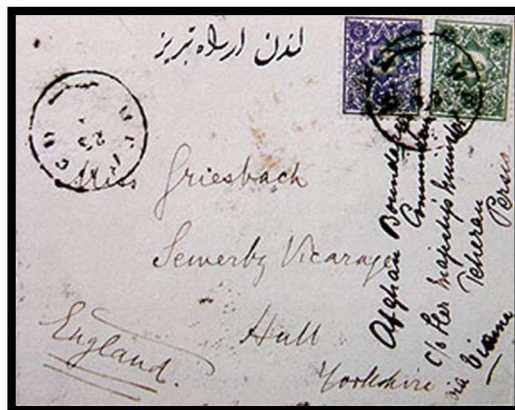 لندن از راه تبریز
Miss Griesbach
Sewerby Vicarage
Hull
Yorkshire
England.
Afghan Boundary
Commission
c/o Her Majesty's Minister
Teheran
Persia
via Vienna